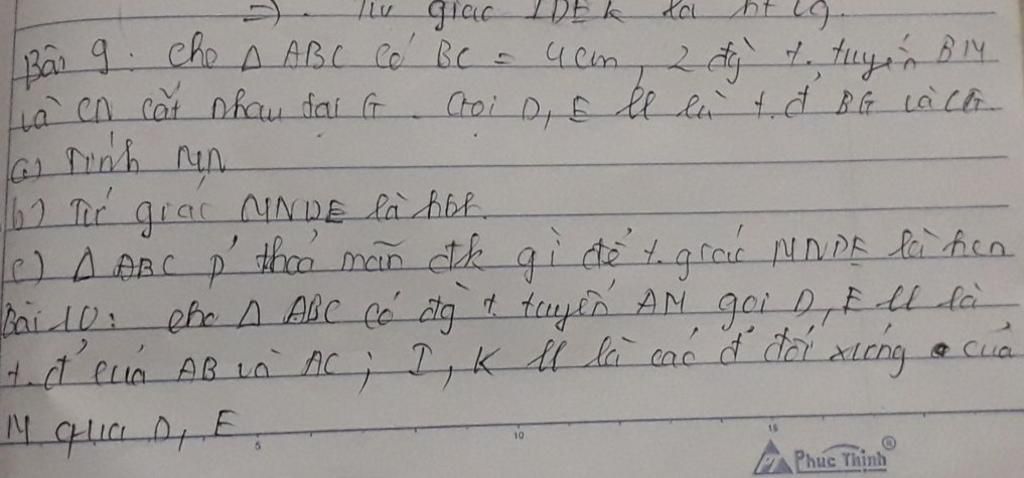 => . Tứ giác IDEK là ht cg.
Bài 9. Cho Δ ABC có BC = 4cm, 2 đg t. tuyến BM
và CN cắt nhau tại G. Gọi D, E ll là t.đ BG và CG
a) Tính MN
b) Tứ giác MNDE là hbh.
c) Δ ABC p' thoả mãn đk gì để t. giác MNDE là hcn
Bài 10: cho Δ ABC có đg t. tuyến AM gọi D, E ll là
t.đ của AB và AC ; I, K ll là các đ đối xứng của
M qua D, E
5 10 15
Phuc Thinh ®